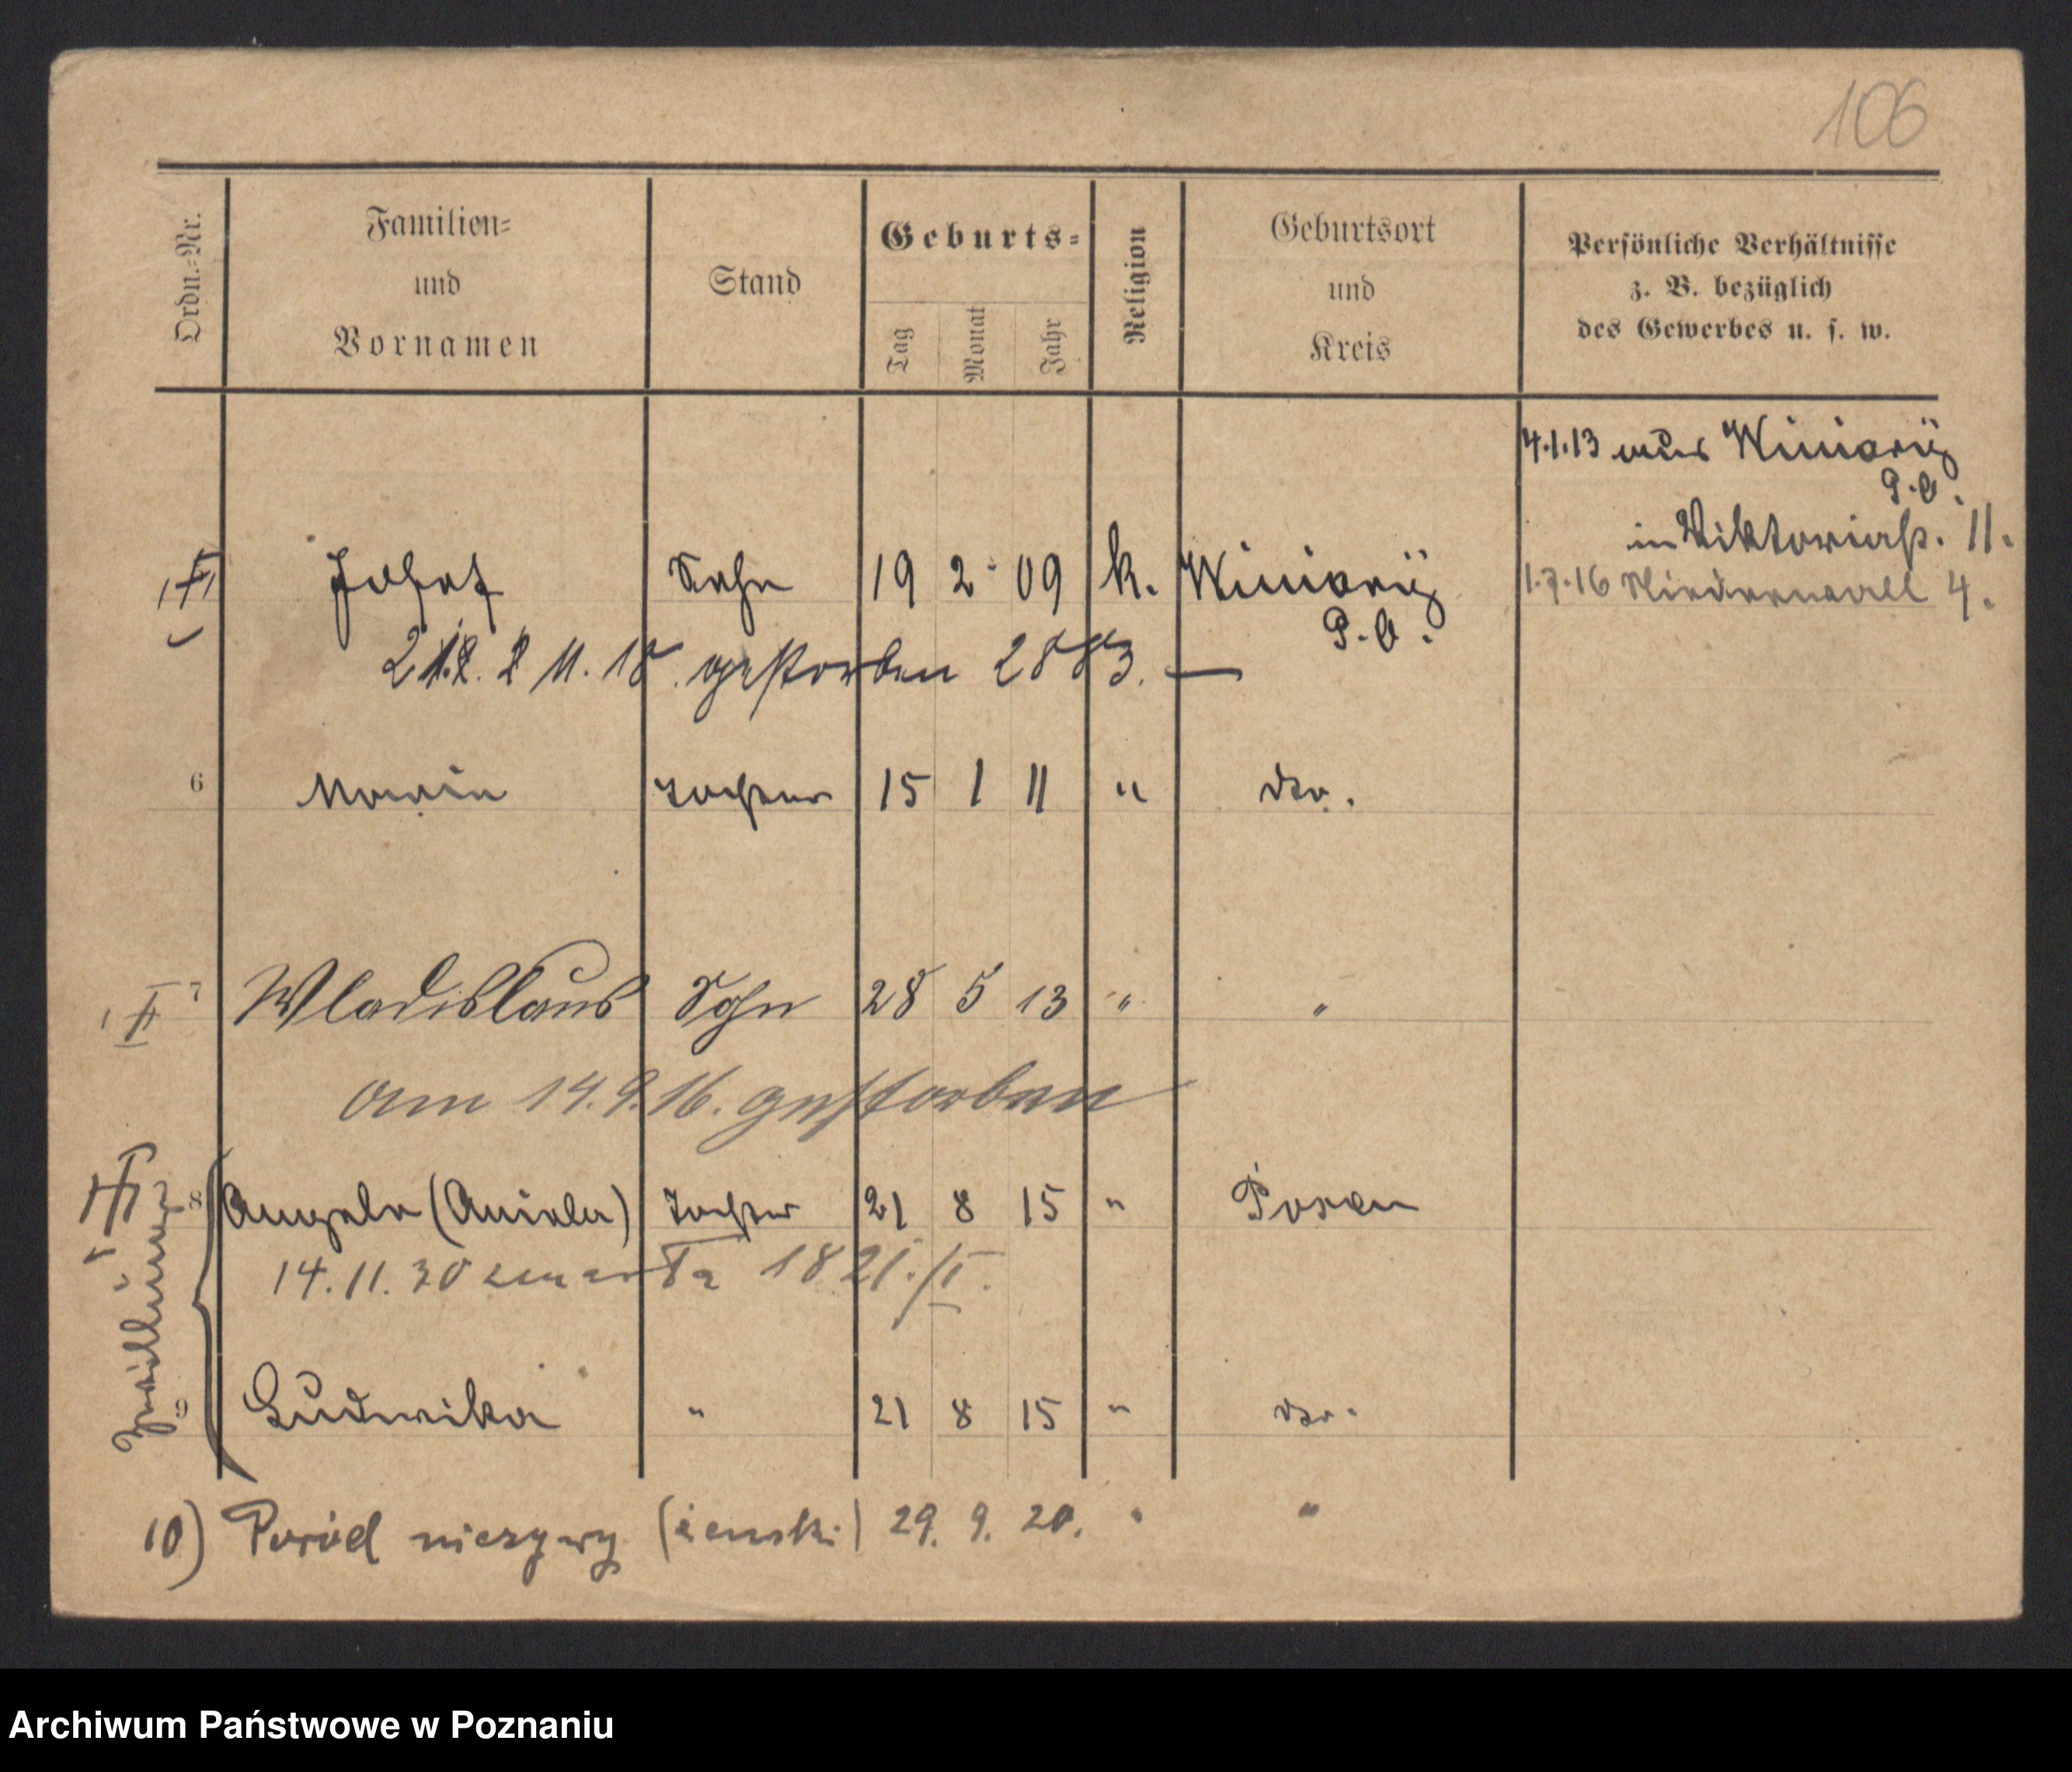 106
Ordn.-Nr.
Familien-
und
Vornamen
Stand
Geburts-
Tag
Monat
Jahr
Religion
Geburtsort
und
Kreis
Persönliche Verhältnisse
z. B. bezüglich
des Gewerbes u. s. w.
4.1.13 aus Winiary
P. O.
in Viktoriastr. 11.
Josef Sohn 19 2 09 k. Winiary 1.7.16 Niederwall 4.
P. O.
11.18. gestorben 2883. —
6 Maria Tochter 15 1 11 " do.
7 Wladislaus Sohn 28 5 13 " "
am 14.9.16. gestorben
Zwillinge
8 Angela (Aniela) Tochter 21 8 15 " Posen
14.11.30 zmarła 1821./II.
9 Ludwika " 21 8 15 " do.
10) Poród nieżywy (żeński) 29. 9. 20. " "
Archiwum Państwowe w Poznaniu